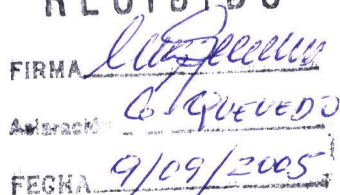 RECIBIDO
FIRMA
Aclaración G. QUEVEDO
FECHA 9/09/2005